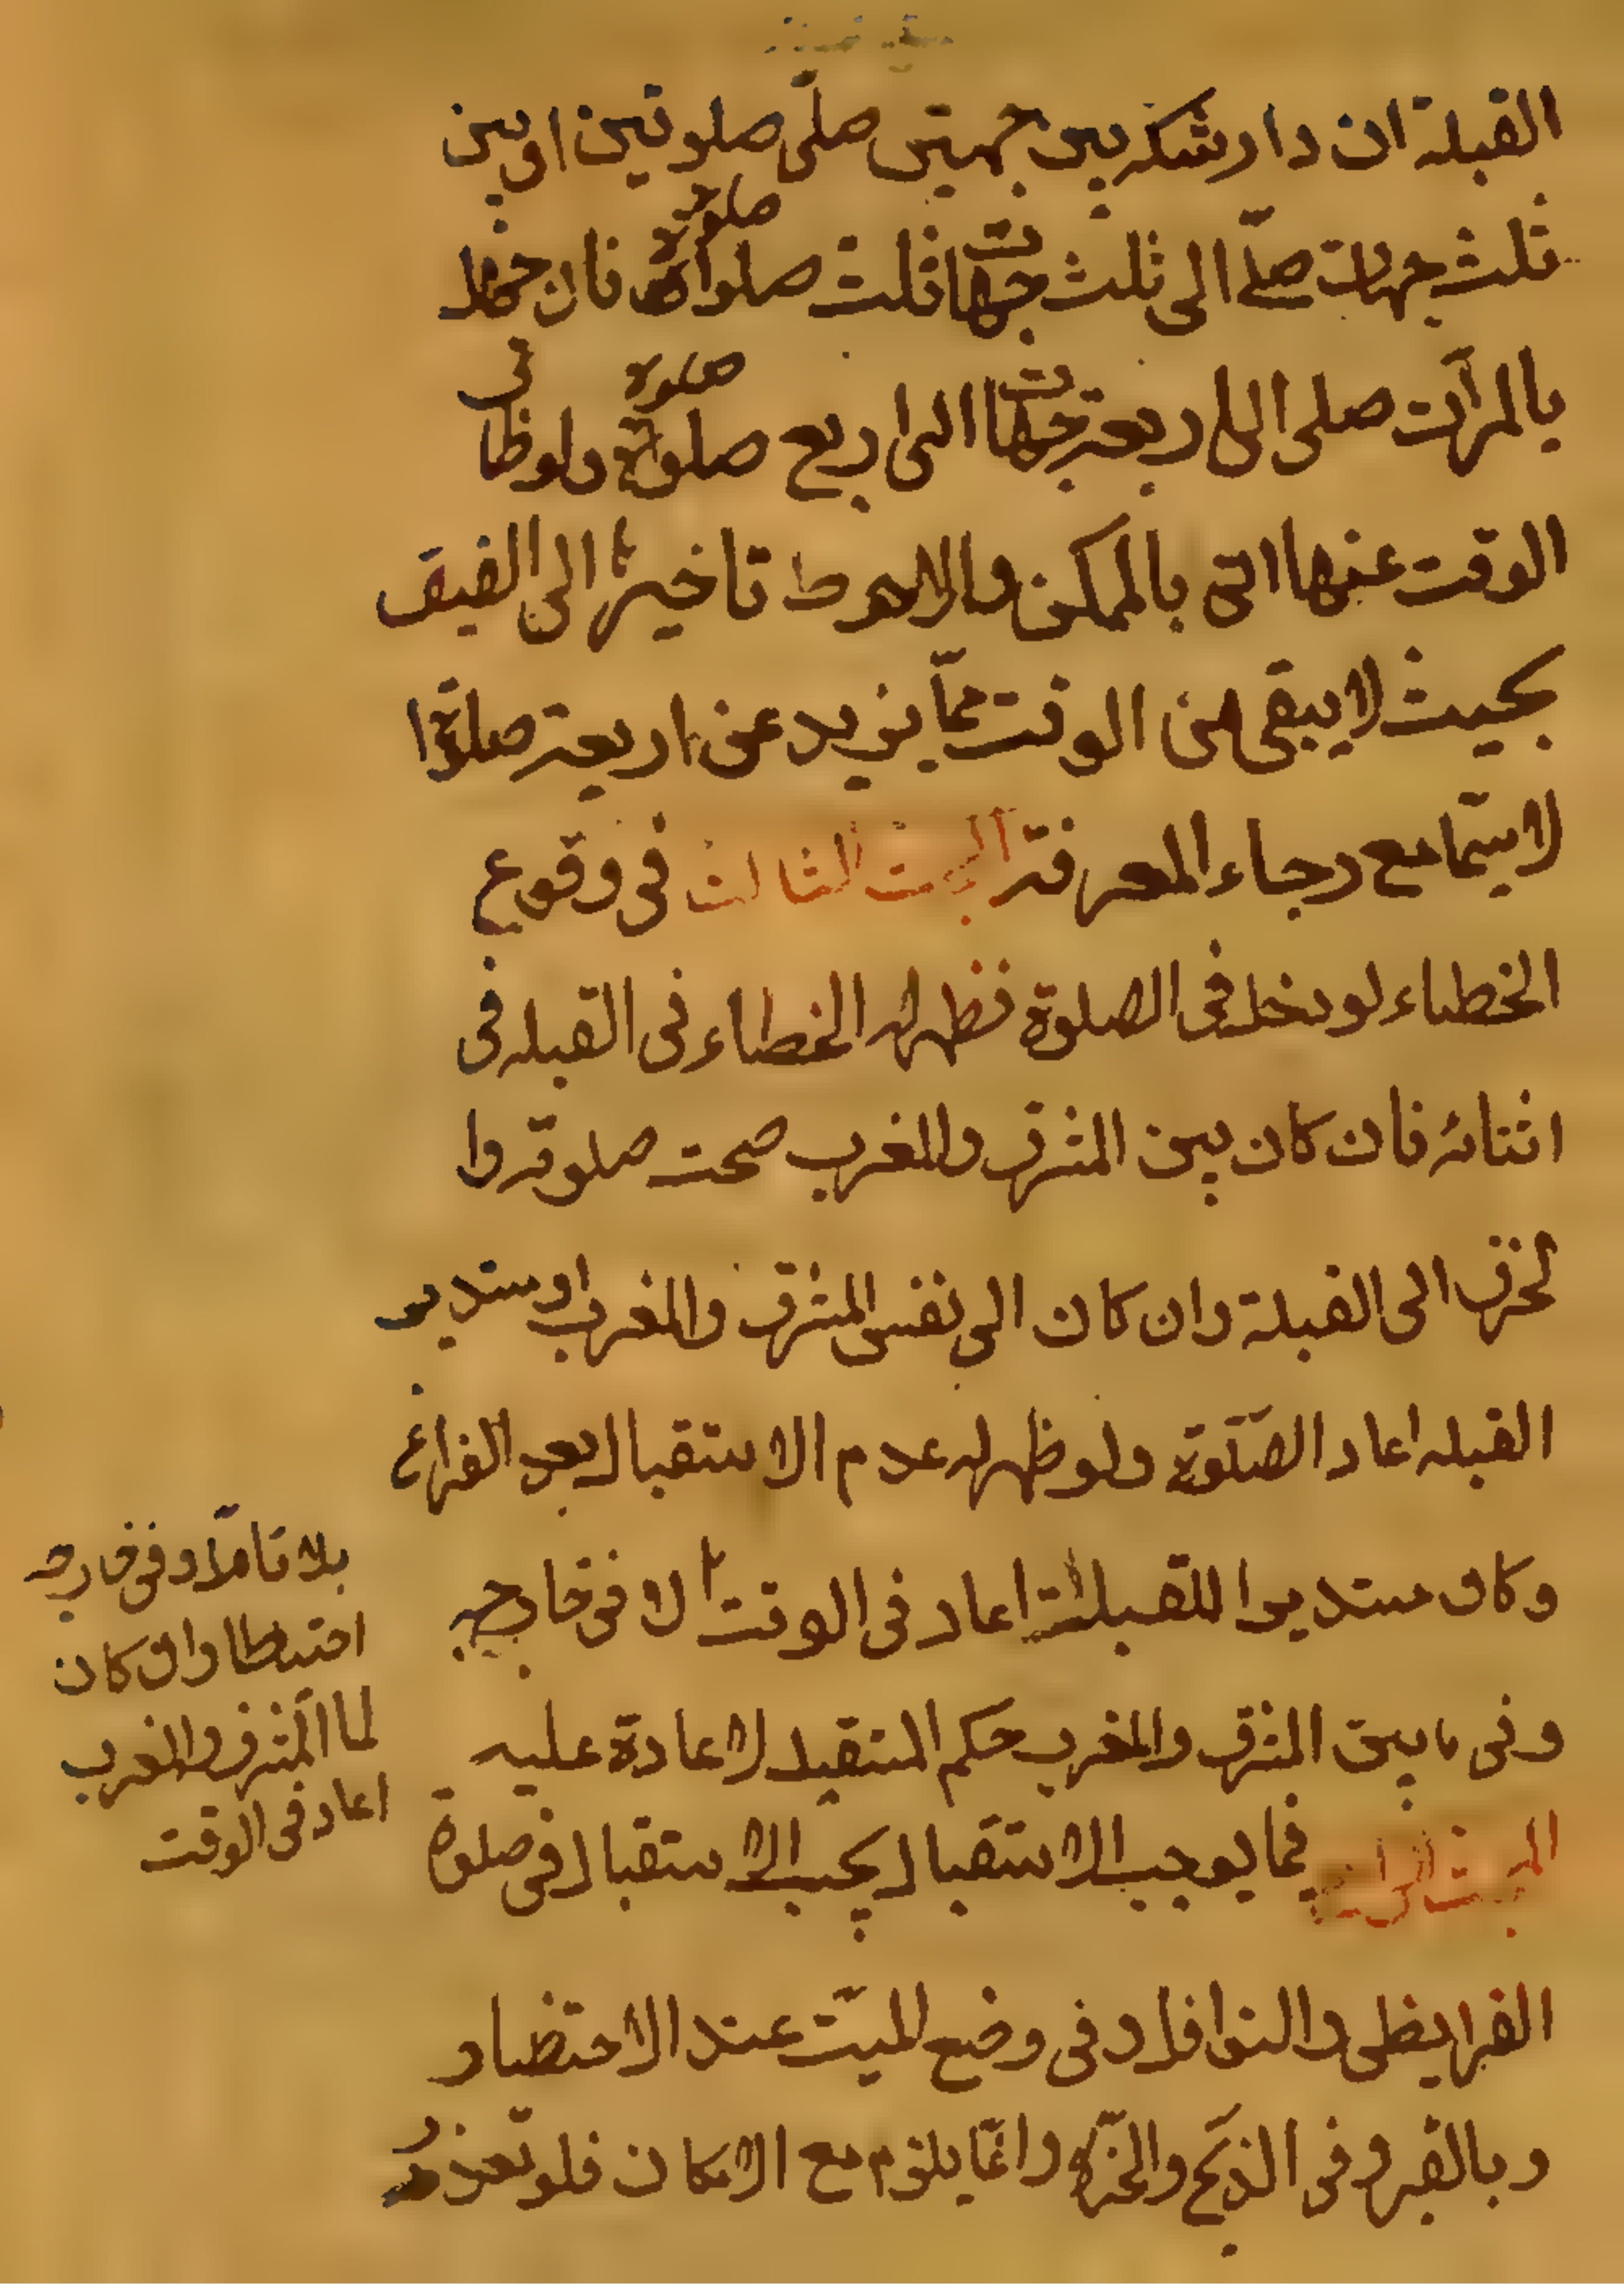 القبلة ان دار شكه بين جهتين صلّى صلوتين او بين
ثلث جهات صلّے الى ثلث جهات ثلث صلوات صلوة فان جهل
بالمرّت صلى الى اربعة جهات الى اربع صلوة صلوة ولو ظاق
الوقت عنها اتى بالممكن والاحوط تاخيرها الى الضيق
بحيث لا يبقى من الوقت ممّا يزيد عن اربعة صلوة
لا سيّما مع رجاء المعرفة البحث الثالث فى وقوع
الخطاء لو دخل فى الصلوة فظهر له الخطاء فى القبله فى
اثنائه فان كان بين المشرق والمغرب صحت صلوته وا
نحرف الى القبلة وان كان الى نفس المشرق والمغرب او ستدبر
القبله اعاد الصّلوة ولو ظهر له عدم الاستقبال بعد الفراغ
وكان مستدبرا للقبلة اعاد فى الوقت لا فى خارجه
وفى ما بين المشرق والمغرب حكم المستقبل لا عادة عليه
المبحث الرابع فيما يوجب الاستقبال يجب الاستقبال فى صلوة
الفرايظى والنوافل وفى وضع الميّت عند الاحتضار
وبالقبر وفى الذبح والنحر وانّما يلزم مع الامكان فلو تعذر
بلا تامّل وفى خارجه
احتياطا وان كان
لما المشرق والمغرب
اعاد فى الوقت